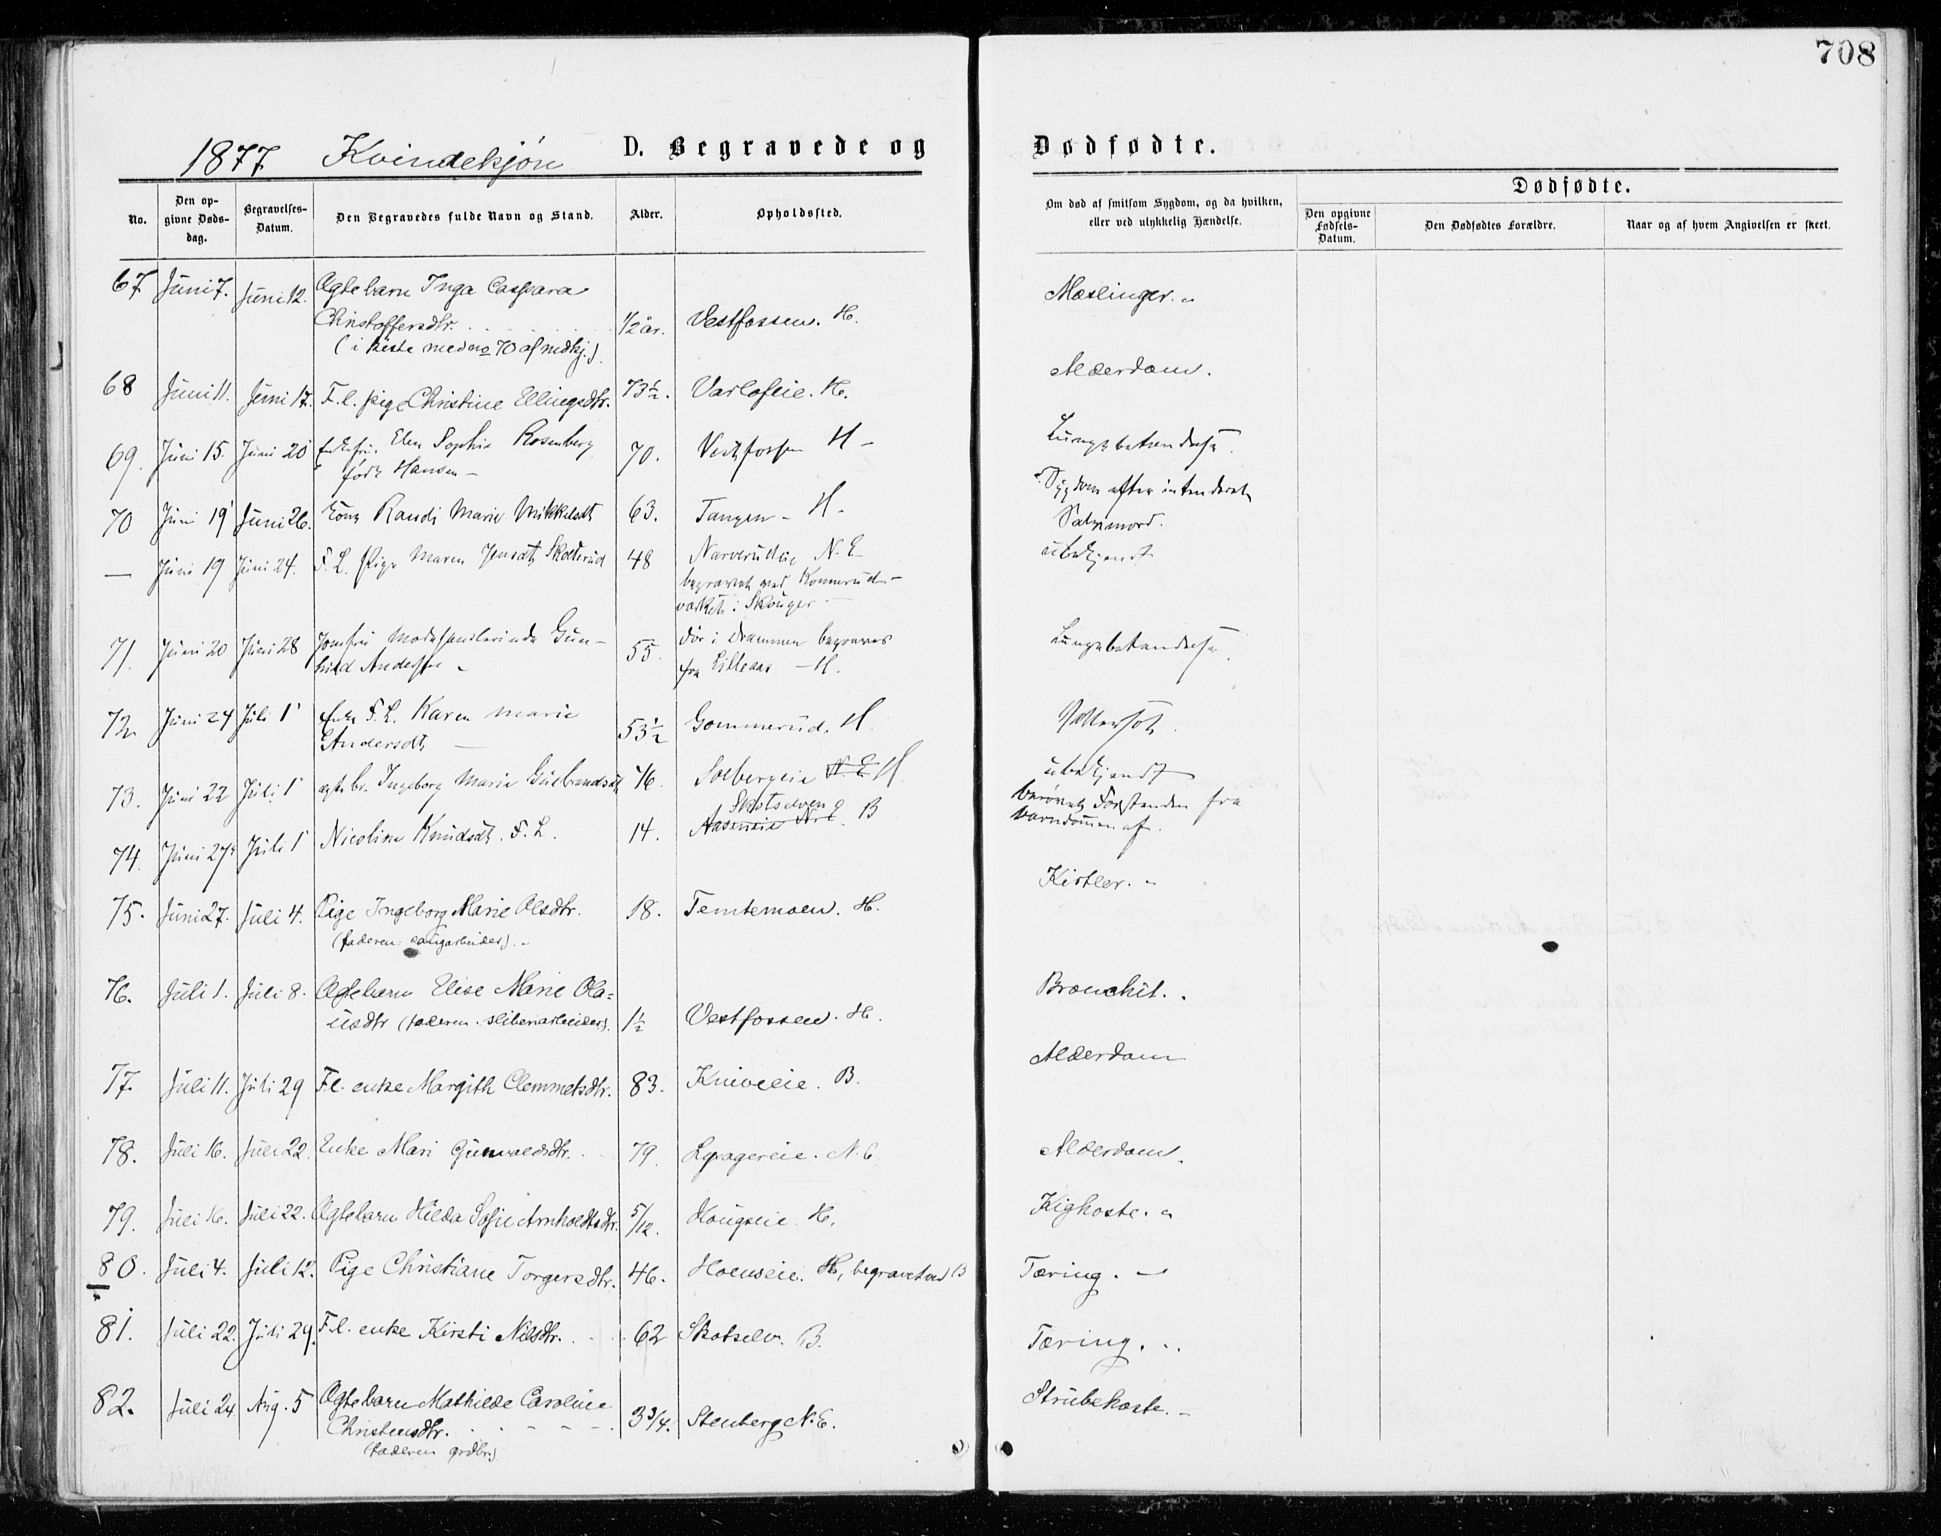 708
1877 Kvindekjøn D. Begravede og Dødfødte.
No.
Den opgivne Dødsdag.
Begravelses-Datum.
Den Begravedes fulde Navn og Stand.
Alder.
Opholdssted.
Om død af smitsom Sygdom, og da hvilken, eller ved ulykkelig Hændelse.
Dødfødte.
Den opgivne Fødsels-Datum.
Den Dødfødtes Forældre.
Naar og af hvem Angivelsen er skeet.
67 Juni 7. Juni 12. Ægtebarn Inga Caspara Mæslinger. "
Christoffersdtr. 1/2 år. Vestfossen. H.
(i kiste med no 70 af mdkj.)
68 Juni 11. Juni 17. F.l. pige Christine Ellingsdtr. 73½. Varlofeie. H. Alderdom.
69. Juni 15. Juni 20 Enkefru. Elen Sophie Rosenberg 70. Vestfossen H - Lungebetændelse.
født Hansen -
70 Juni 19 Juni 26. Kone Randi Marie Mikkelsdt 63. Tangen - H - Sygdom efter intenderet
Selvmord.
— Juni 19 Juni 24. F. L. Pige Maren Jensdt Skotterud 48 Narverudeie N. E ubekjendt
begravet ved Konnerud-
værket i Skouger -
71. Juni 20 Juni 28 Jomfru Modehandlerinde Gun- 55 Dør i Drammen begraves Lungebetændelse.
hild Andersen - fra Lilleaas - H.
72. Juni 24 Juli 1 Enke F. L. Karen Marie 53½ Gommerud. H.
Andersdt
73. Juni 22 Juli 1 ægtebr. Ingeborg Marie Gulbrandsdt 76. Solbergeie N. E H ubekjendt
74. Juni 27 Juli 1 Nicoline Knudsdt. F. L. 14. Skotselven B berøvet Forstanden fra
barndommen af.
75. Juni 27. Juli 4. Pige Ingeborg Marie Olsdtr. 18. Temtemoen. H. Kirtler. "
(faderen: saugarbeider). -
76. Juli 1. Juli 8. Ægtebarn Elise Marie Ola= Bronchit. "
usdtr (faderen. sliberiarbeider). 1½ Vestfossen. H.
77. Juli 11. Juli 29 F.l. enke Margith Clemmetsdtr. 83. Kniveeie. B. Alderdom
78. Juli 16. Juli 22. Enke Mari Gunvaldsdtr. 79. Lyragereie. N. E. Alderdom.
79. Juli 16. Juli 22. Ægtebarn Hilda Sofie Arnholdtsdtr. 5/12. Hougseie. H. Kighoste. "
80. Juli 4. Juli 12. Pige Christiane Torgersdtr. 46. Hoenseie. H, begravet ved B Tæring. -
81. Juli 22. Juli 29. F.l. enke Kirsti Nilsdtr. 62 Skotselv. B. Tæring. "
82. Juli 24 Aug. 5 Ægtebarn Mathilde Caroline Strubehoste. -
Christensdtr. 3¾. Stenberg N. E.
(faderen grdbr.)